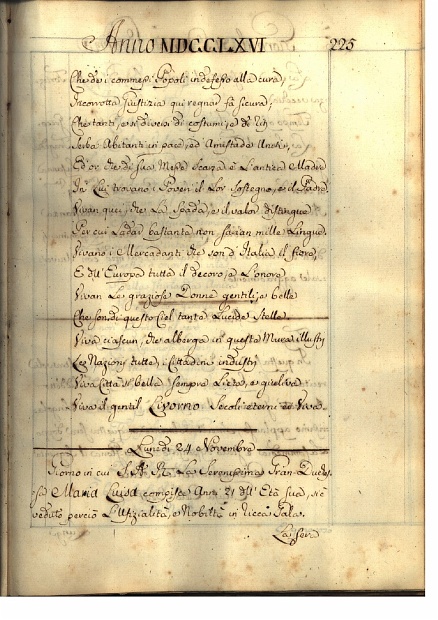 Anno MDCCLXVI 225
Che de i commessi Popoli indefesso alla cura,
Incorrotta Giustizia qui regnar fa sicura,
Che tanti, e sì diversi di costumi, e di
Serba Abitanti in pace, ed Amistade
Ed or che di sua Mano è l'antica Madre
In Lui trovano i Poveri il Lor Sostegno, e il Padre
Vivan quei, che La Spada, e il valor distingue
Per cui Lodar bastanti non sarian mille Lingue.
Vivano i Mercadanti che son d'Italia il fiore,
E dell'Europa tutta il decoro, e l'onore
Vivan Le graziose Donne gentili, e belle
Che son di questo Ciel tante Lucide Stelle.
Viva ciascun, che alberga in queste Mura illustri
Le Nazioni tutte, i Cittadini industri
Viva Città sì bella sempre Lieta, e giuliva
Viva il gentil Livorno Secoli eterni Viva.
Lunedì 24 Novembre
Giorno in cui S. A. R. La Serenissima Gran Duches-
sa Maria Luisa compisce Anni 21 dell' Età Sua, si è
veduto perciò L'Ufizialità, e Nobiltà in ricca Gala.
La Sera